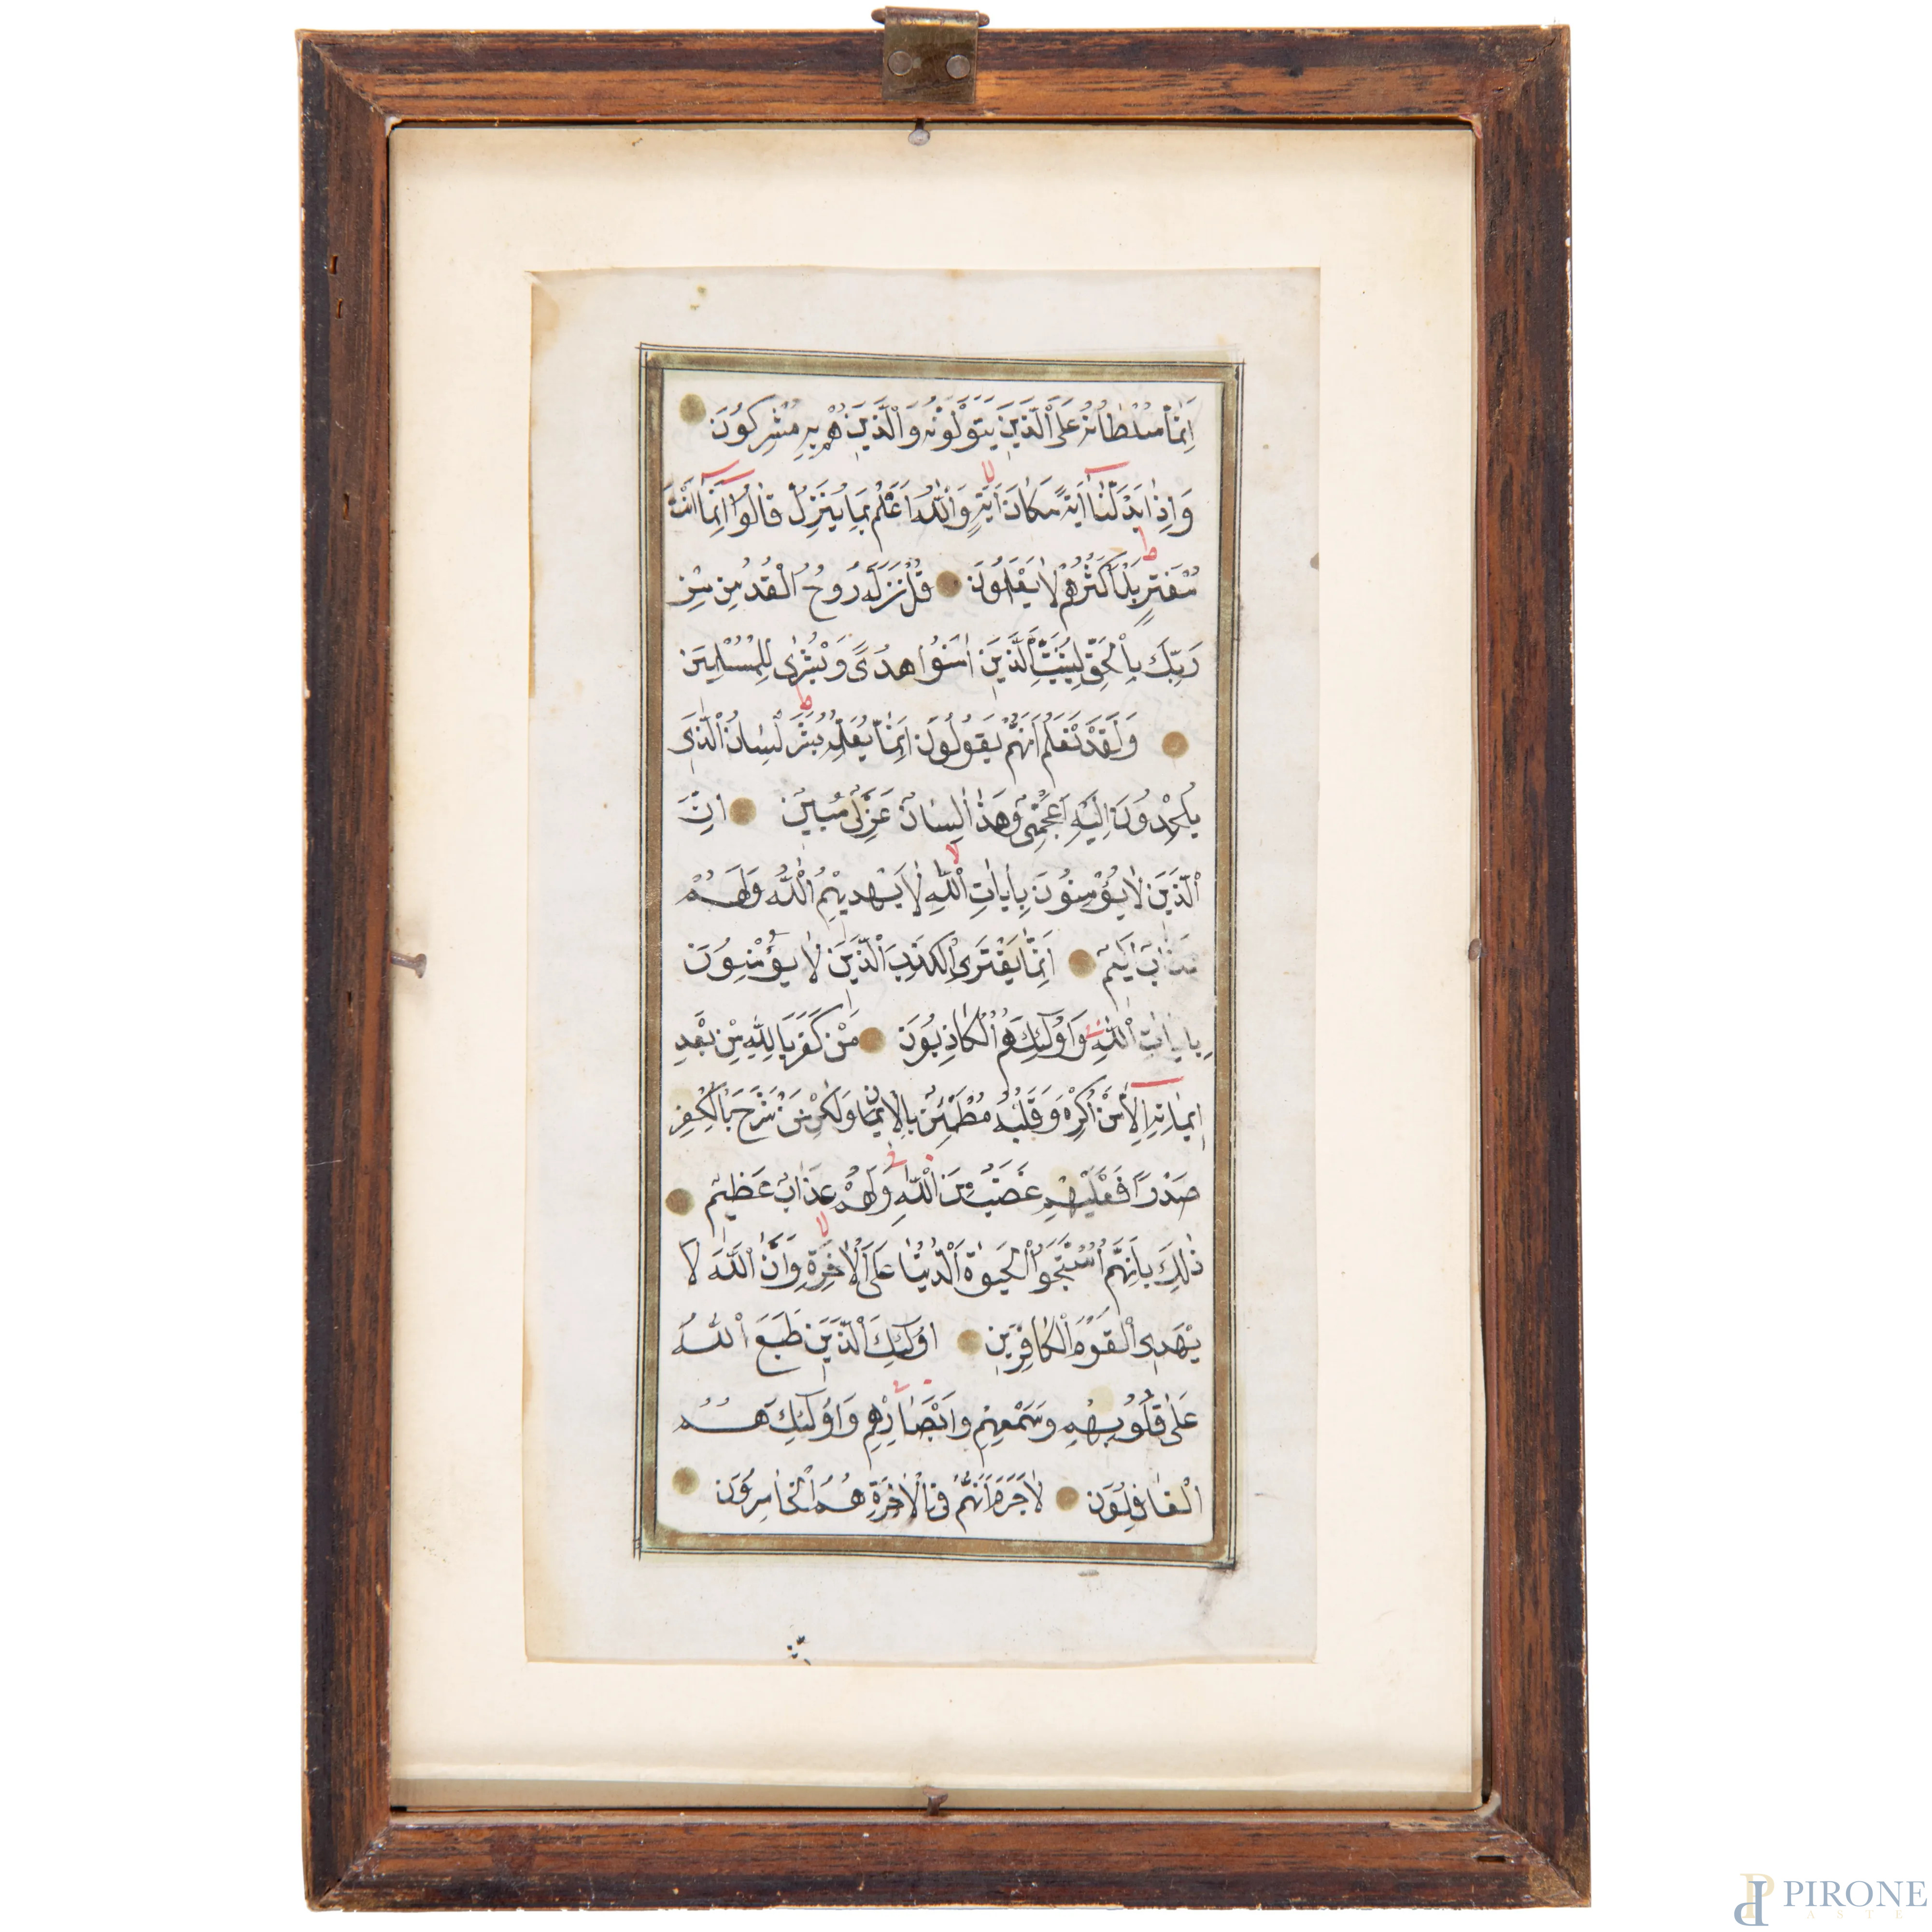 اِنَّمَا سُلْطَانُهُ عَلَى الَّذِينَ يَتَوَلَّوْنَهُ وَالَّذِينَ هُمْ بِهِ مُشْرِكُونَ
وَاِذَا بَدَّلْنَا اٰيَةً مَكَانَ اٰيَةٍ وَاللّٰهُ اَعْلَمُ بِمَا يُنَزِّلُ قَالُوا اِنَّمَا اَنْتَ
مُفْتَرٍ بَلْ اَكْثَرُهُمْ لَا يَعْلَمُونَ قُلْ نَزَّلَهُ رُوحُ الْقُدُسِ مِنْ
رَبِّكَ بِالْحَقِّ لِيُثَبِّتَ الَّذِينَ اٰمَنُوا هُدًى وَبُشْرٰى لِلْمُسْلِمِينَ
وَلَقَدْ نَعْلَمُ اَنَّهُمْ يَقُولُونَ اِنَّمَا يُعَلِّمُهُ بَشَرٌ لِسَانُ الَّذِى
يُلْحِدُونَ اِلَيْهِ اَعْجَمِىٌّ وَهٰذَا لِسَانٌ عَرَبِىٌّ مُبِينٌ اِنَّ
الَّذِينَ لَا يُؤْمِنُونَ بِاٰيَاتِ اللّٰهِ لَا يَهْدِيهِمُ اللّٰهُ وَلَهُمْ
عَذَابٌ اَلِيمٌ اِنَّمَا يَفْتَرِى الْكَذِبَ الَّذِينَ لَا يُؤْمِنُونَ
بِاٰيَاتِ اللّٰهِ وَاُولٰئِكَ هُمُ الْكَاذِبُونَ مَنْ كَفَرَ بِاللّٰهِ مِنْ بَعْدِ
اِيمَانِهِ اِلَّا مَنْ اُكْرِهَ وَقَلْبُهُ مُطْمَئِنٌّ بِالْاِيمَانِ وَلٰكِنْ مَنْ شَرَحَ بِالْكُفْرِ
صَدْرًا فَعَلَيْهِمْ غَضَبٌ مِنَ اللّٰهِ وَلَهُمْ عَذَابٌ عَظِيمٌ
ذٰلِكَ بِاَنَّهُمُ اسْتَحَبُّوا الْحَيٰوةَ الدُّنْيَا عَلَى الْاٰخِرَةِ وَاَنَّ اللّٰهَ لَا
يَهْدِى الْقَوْمَ الْكَافِرِينَ اُولٰئِكَ الَّذِينَ طَبَعَ اللّٰهُ
عَلٰى قُلُوبِهِمْ وَسَمْعِهِمْ وَاَبْصَارِهِمْ وَاُولٰئِكَ هُمُ
الْغَافِلُونَ لَا جَرَمَ اَنَّهُمْ فِى الْاٰخِرَةِ هُمُ الْخَاسِرُونَ
PIRONE
ASTE